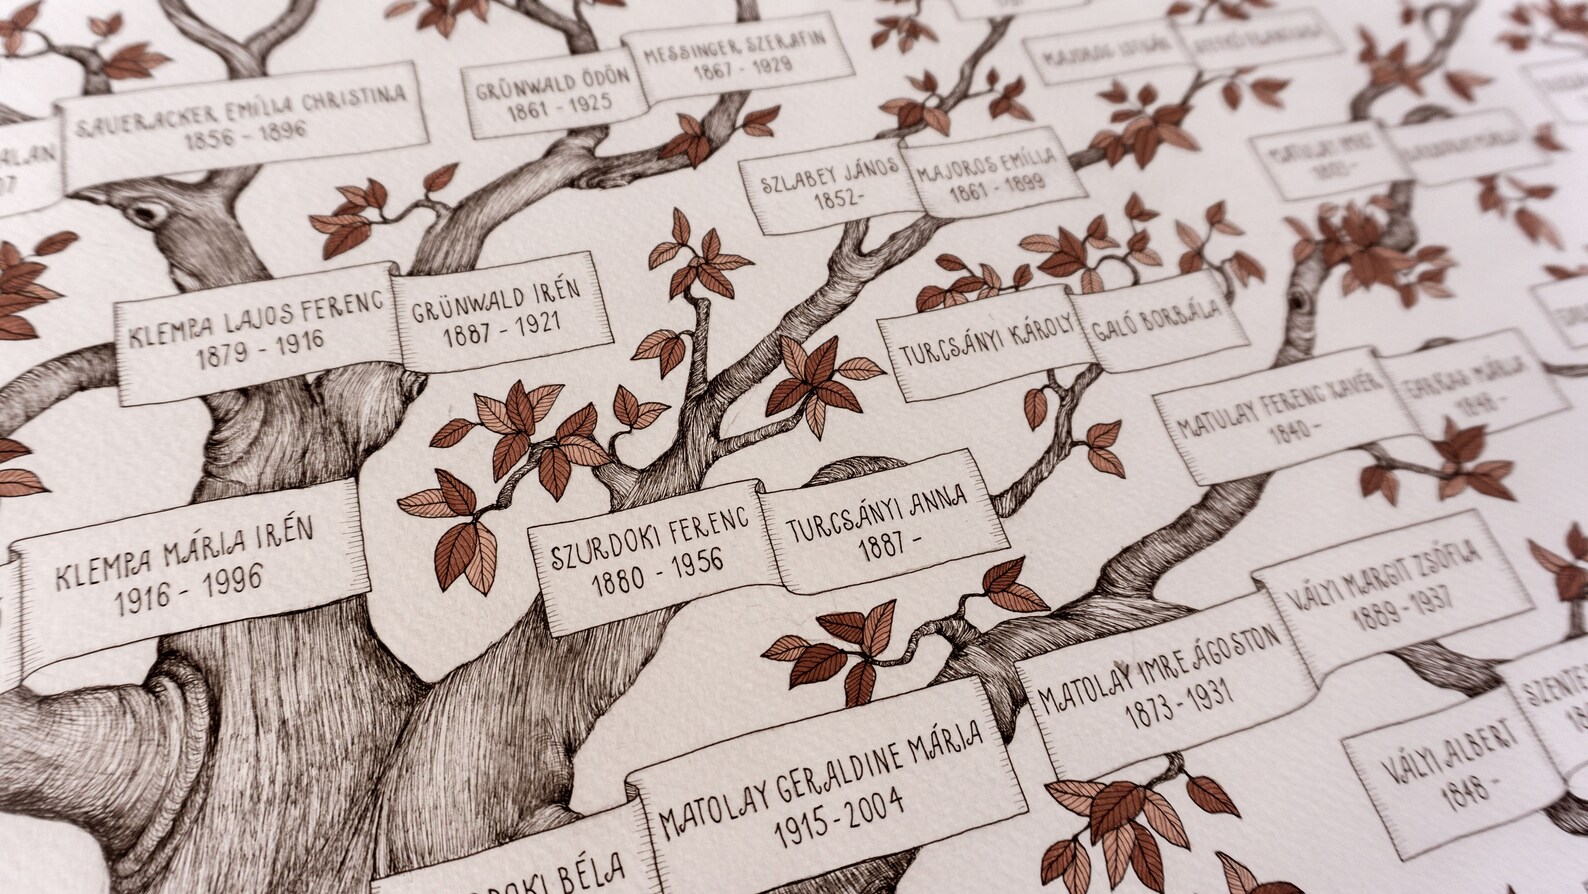 SAUERACKER EMÍLIA CHRISTINA
1856 - 1896
GRÜNWALD ÖDÖN
1861 - 1925
MESSINGER SZERAFIN
1867 - 1929
MAJOROS ISTVÁN
ALAN
SZLABEY JÁNOS
1852-
MAJOROS EMÍLIA
1861 - 1899
KLEMPA LAJOS FERENC
1879 - 1916
GRÜNWALD IRÉN
1887 - 1921
TURCSÁNYI KÁROLY
GALÓ BORBÁLA
MATULAY FERENC XAVÉR
1840-
MÁRIA
1848-
KLEMPA MÁRIA IRÉN
1916 - 1996
SZURDOKI FERENC
1880 - 1956
TURCSÁNYI ANNA
1887 -
MATOLAY IMRE ÁGOSTON
1873-1931
VÁLYI MARGIT ZSÓFIA
1889-1937
MATOLAY GERALDINE MÁRIA
1915-2004
VÁLYI ALBERT
1848-
SZENTE
DOKI BÉLA